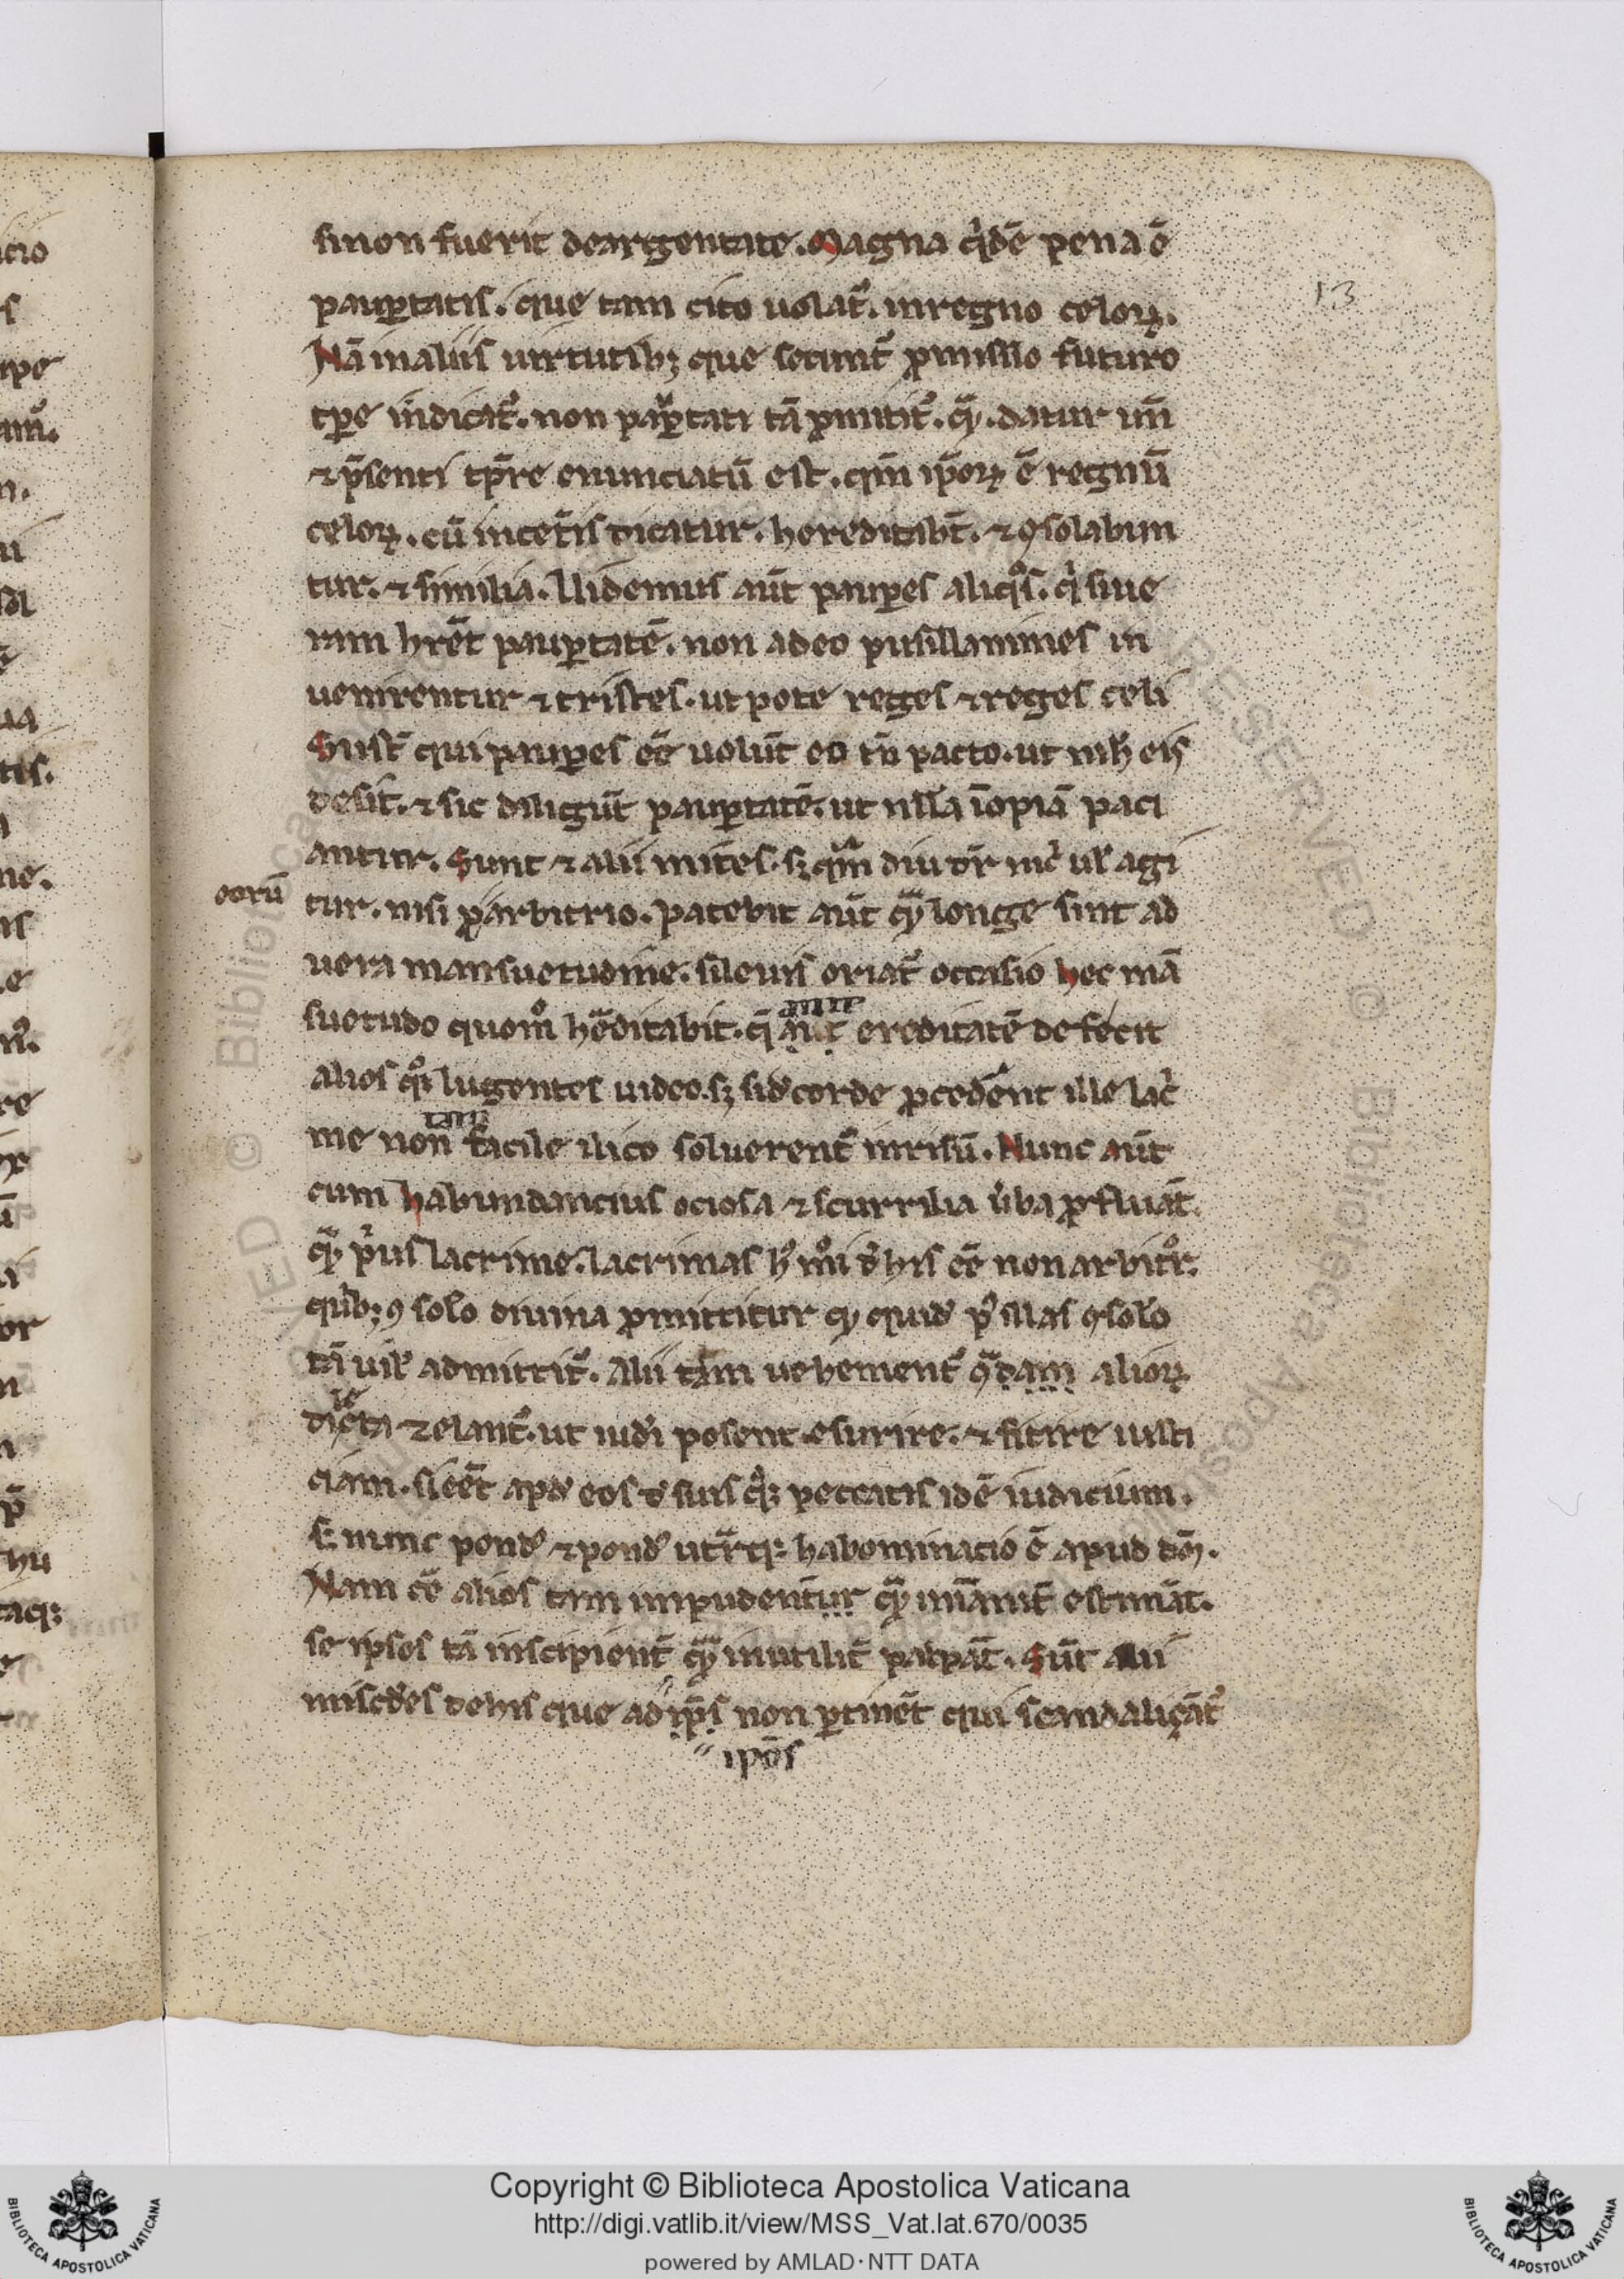 sinon fuerit deargentate. Magna q̇dē penna ē
paup̱tatis. que tam cito uolat᷒. inregno celoꝝ.
Nā inaliis uirtutibꝫ que secunt᷒ ꝓmissio futuro
tp̄e indicat᷒. non paup̱tati tā ꝓmitit᷒. qͣꝫ. datur un̄
⁊ p̄senti tp̄re enunciatū est. qm̄ ip̄oꝝ ē regnū
celoꝝ. cū incet̄is dicatur. hereditabt̄. ⁊ ꝯsolabun
tur. ⁊ similia. Uidemus aūt paup̱es aliqͦs. qͥ siue
ram hr̄et paup̱tatē. non adeo pusillanimes in
uenirentur ⁊ tristes. ut pote reges ⁊ reges celi
Sūst qui paup̱es eē uolūt eo tn̄ pacto. ut nih̄ eis
desit. ⁊ sic diligūt paup̱tatē. ut nll̄a īopiā paci
antur. Sunt ⁊ alii mites. sꝫ qͣm diu dr̄ nic̄ ul̄ agi
eorū
tur. nisi ꝓ arbitrio. Patebit aūt qͣꝫ longe sint ad
uera mansuetudine. si leuis oriat᷒ occasio hec mā
suetudo quom̊ hēditabit. q̄ aut ereditatē defecit
ante
alios qͦꝫ lugentes uideo. sꝫ si d̓ corde ꝓcedēnt ille lac̓
tam
me non facile ilico soluerent᷒ inrisū. Nunc aūt
cum habundancius ociosa ⁊ scurrilia u̓ba ꝓfluāt.
qͣꝫ p̓us lacrime. lacrimas h̓ m̊i d̓ his eē non arbitr̊.
quibꝫ ꝯsolo diuina ꝓmittitur qꝫ quid̓ p̓ illas ꝯsolo
tā uil̓ admittit᷒. Alii tam uehement᷒ qͣdam alioꝝ
le
dicta ⁊elant᷒. ut uid̓i posent esurire. ⁊ sitire iusti
ciam. si eēt apd̓ eos d̓ suis qͦꝫ peccatis idē iudicium.
S; nunc pond̓ ⁊ pond̓ utrͣqꝫ habominatio ē apud dm̄.
Nam cē alios tam impudentur qͣꝫ inānit᷒ estuāt.
se ipsos tā inscipient᷒ qͣꝫ inutilit᷒ palpāt. Sūt alii
misc̓des dehis que ad ip̄s non ꝑtinēt qui scandaliçāt᷒
ipōs
13
Copyright © Biblioteca Apostolica Vaticana
http://digi.vatlib.it/view/MSS_Vat.lat.670/0035
powered by AMLAD·NTT DATA
BIBLIOTECA APOSTOLICA VATICANA
BIBLIOTECA APOSTOLICA VATICANA